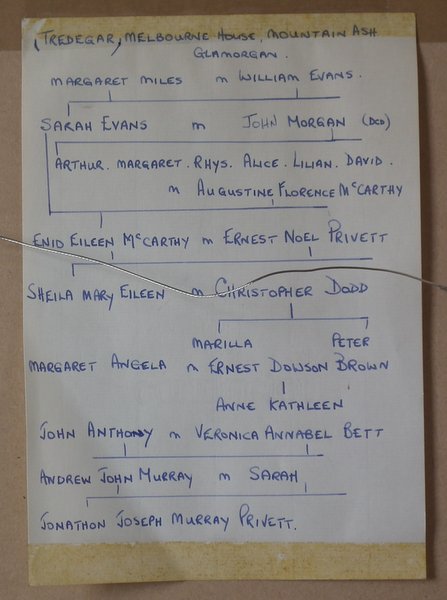 (TREDEGAR, MELBOURNE HOUSE, MOUNTAIN ASH
GLAMORGAN.
MARGARET MILES m WILLIAM EVANS.
SARAH EVANS m JOHN MORGAN (DCD)
ARTHUR. MARGARET. RHYS. ALICE. LILIAN. DAVID.
m AUGUSTINE FLORENCE McCARTHY
ENID EILEEN McCARTHY m ERNEST NOEL PRIVETT
SHEILA MARY EILEEN m CHRISTOPHER DODD
MARILLA PETER
MARGARET ANGELA m ERNEST DOWSON BROWN
ANNE KATHLEEN
JOHN ANTHONY m VERONICA ANNABEL BETT
ANDREW JOHN MURRAY m SARAH
JONATHON JOSEPH MURRAY PRIVETT.